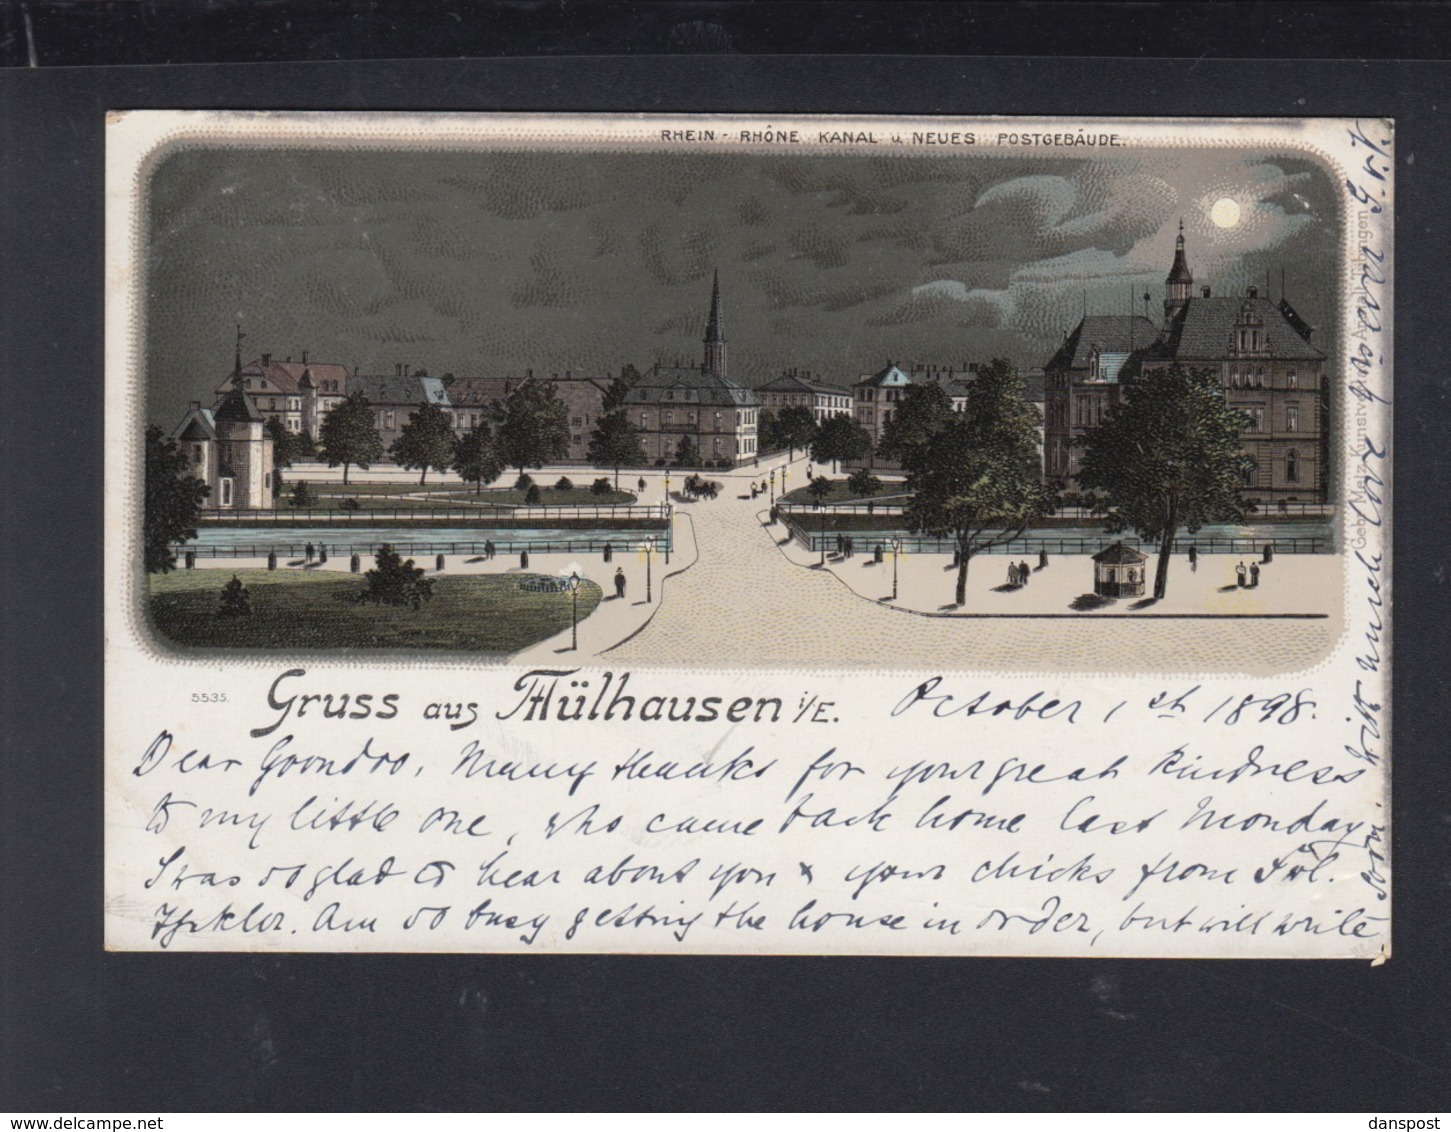 RHEIN - RHÔNE KANAL u. NEUES POSTGEBÄUDE.
5535.
Gruss aus Mülhausen i/E.
October 1st 1898.
Dear Goondoo, Many thanks for your great kindness
to my little one, who came back home last Monday
I was so glad to hear about you & your chicks from Frl.
Am so busy getting the house in order, but will write
soon. With much love
Gebr. Metz Kunstverl. Anst. Tübingen
danspost